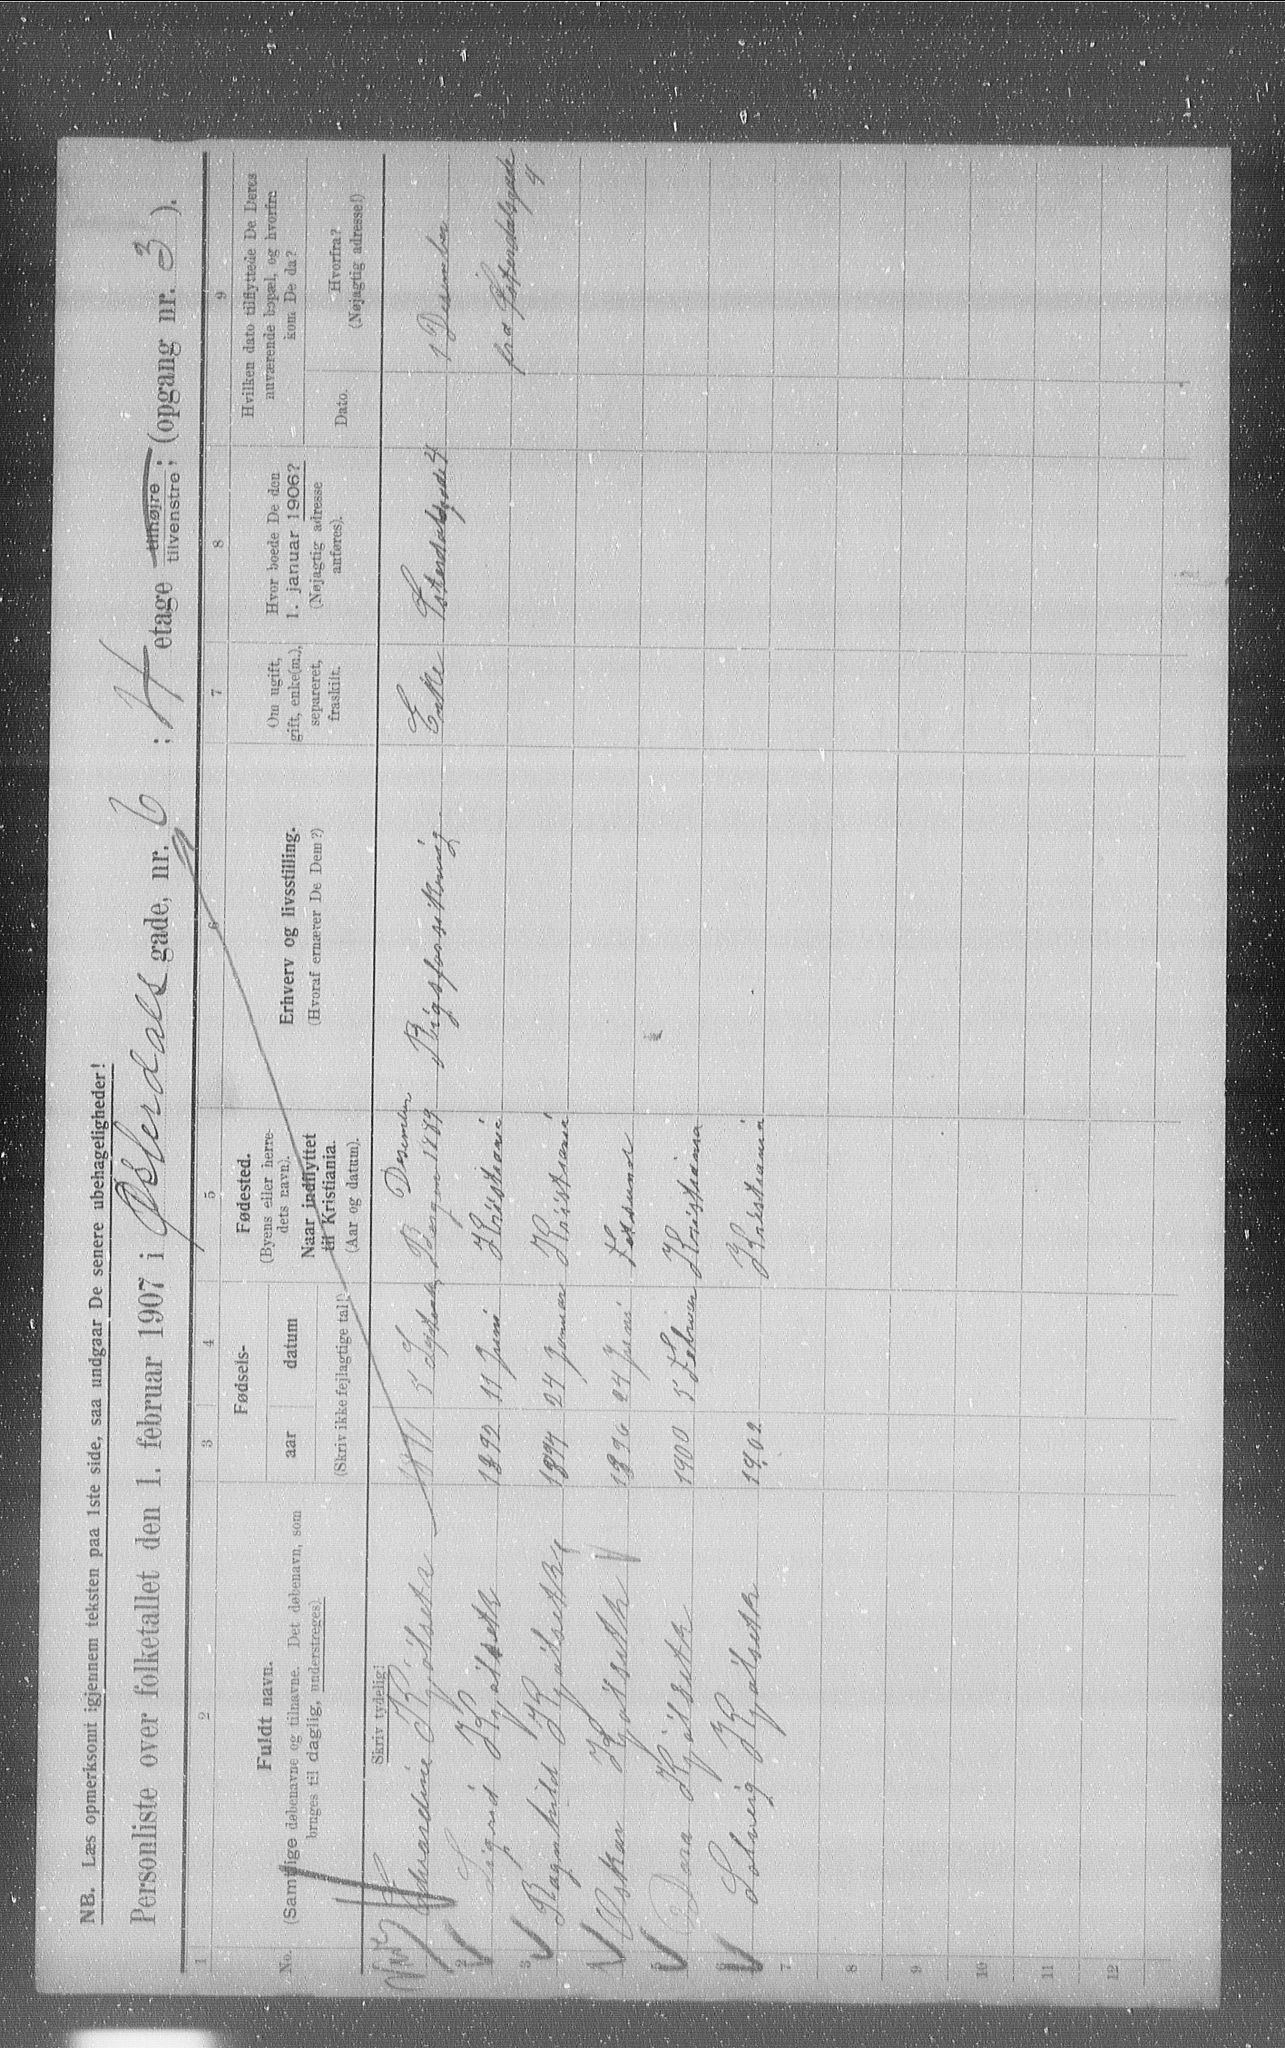 NB. Læs opmerksomt igjennem teksten paa 1ste side, saa undgaar De senere ubehageligheder!
Personliste over folketallet den 1. februar 1907 i Østerdals gade, nr. 6 ; H etage tilhøjre ; tilvenstre ; (opgang nr. 3 ).
1 2 3 4 5 6 7 8 9
No.
Fuldt navn.
(Samtlige døbenavne og tilnavne. Det døbenavn, som
bruges til daglig, understreges).
Fødsels-
aar datum
(Skriv ikke fejlagtige tal!)
Fødested.
(Byens eller herre-
dets navn).
Naar indflyttet
til Kristiania.
(Aar og datum).
Erhverv og livsstilling.
(Hvoraf ernærer De Dem?)
Om ugift,
gift, enke(m.),
separeret,
fraskilt.
Hvor boede De den
1. januar 1906?
(Nøjagtig adresse
anføres).
Hvilken dato tilflyttede De Deres
nuværende bopæl, og hvorfra
kom De da?
Dato.
Hvorfra?
(Nøjagtig adresse!)
Skriv tydelig!
Edvardine Kjølseth 5 Bergen Desember 1889 Enke Østerdalsgade 4 1 Desember
2 Sigrid Kjølseth 1892 11 Juni Kristiania fra Østerdalsgade 4
3 Ragnhild Kjølseth 1894 24 Januar Kristiania
4 Oskar Kjølseth 1896 24 Juni
5 Dora Kjølseth 1900 5 Februar Kristiania
6 Solveig Kjølseth 1902 Kristiania
7
8
9
10
11
12